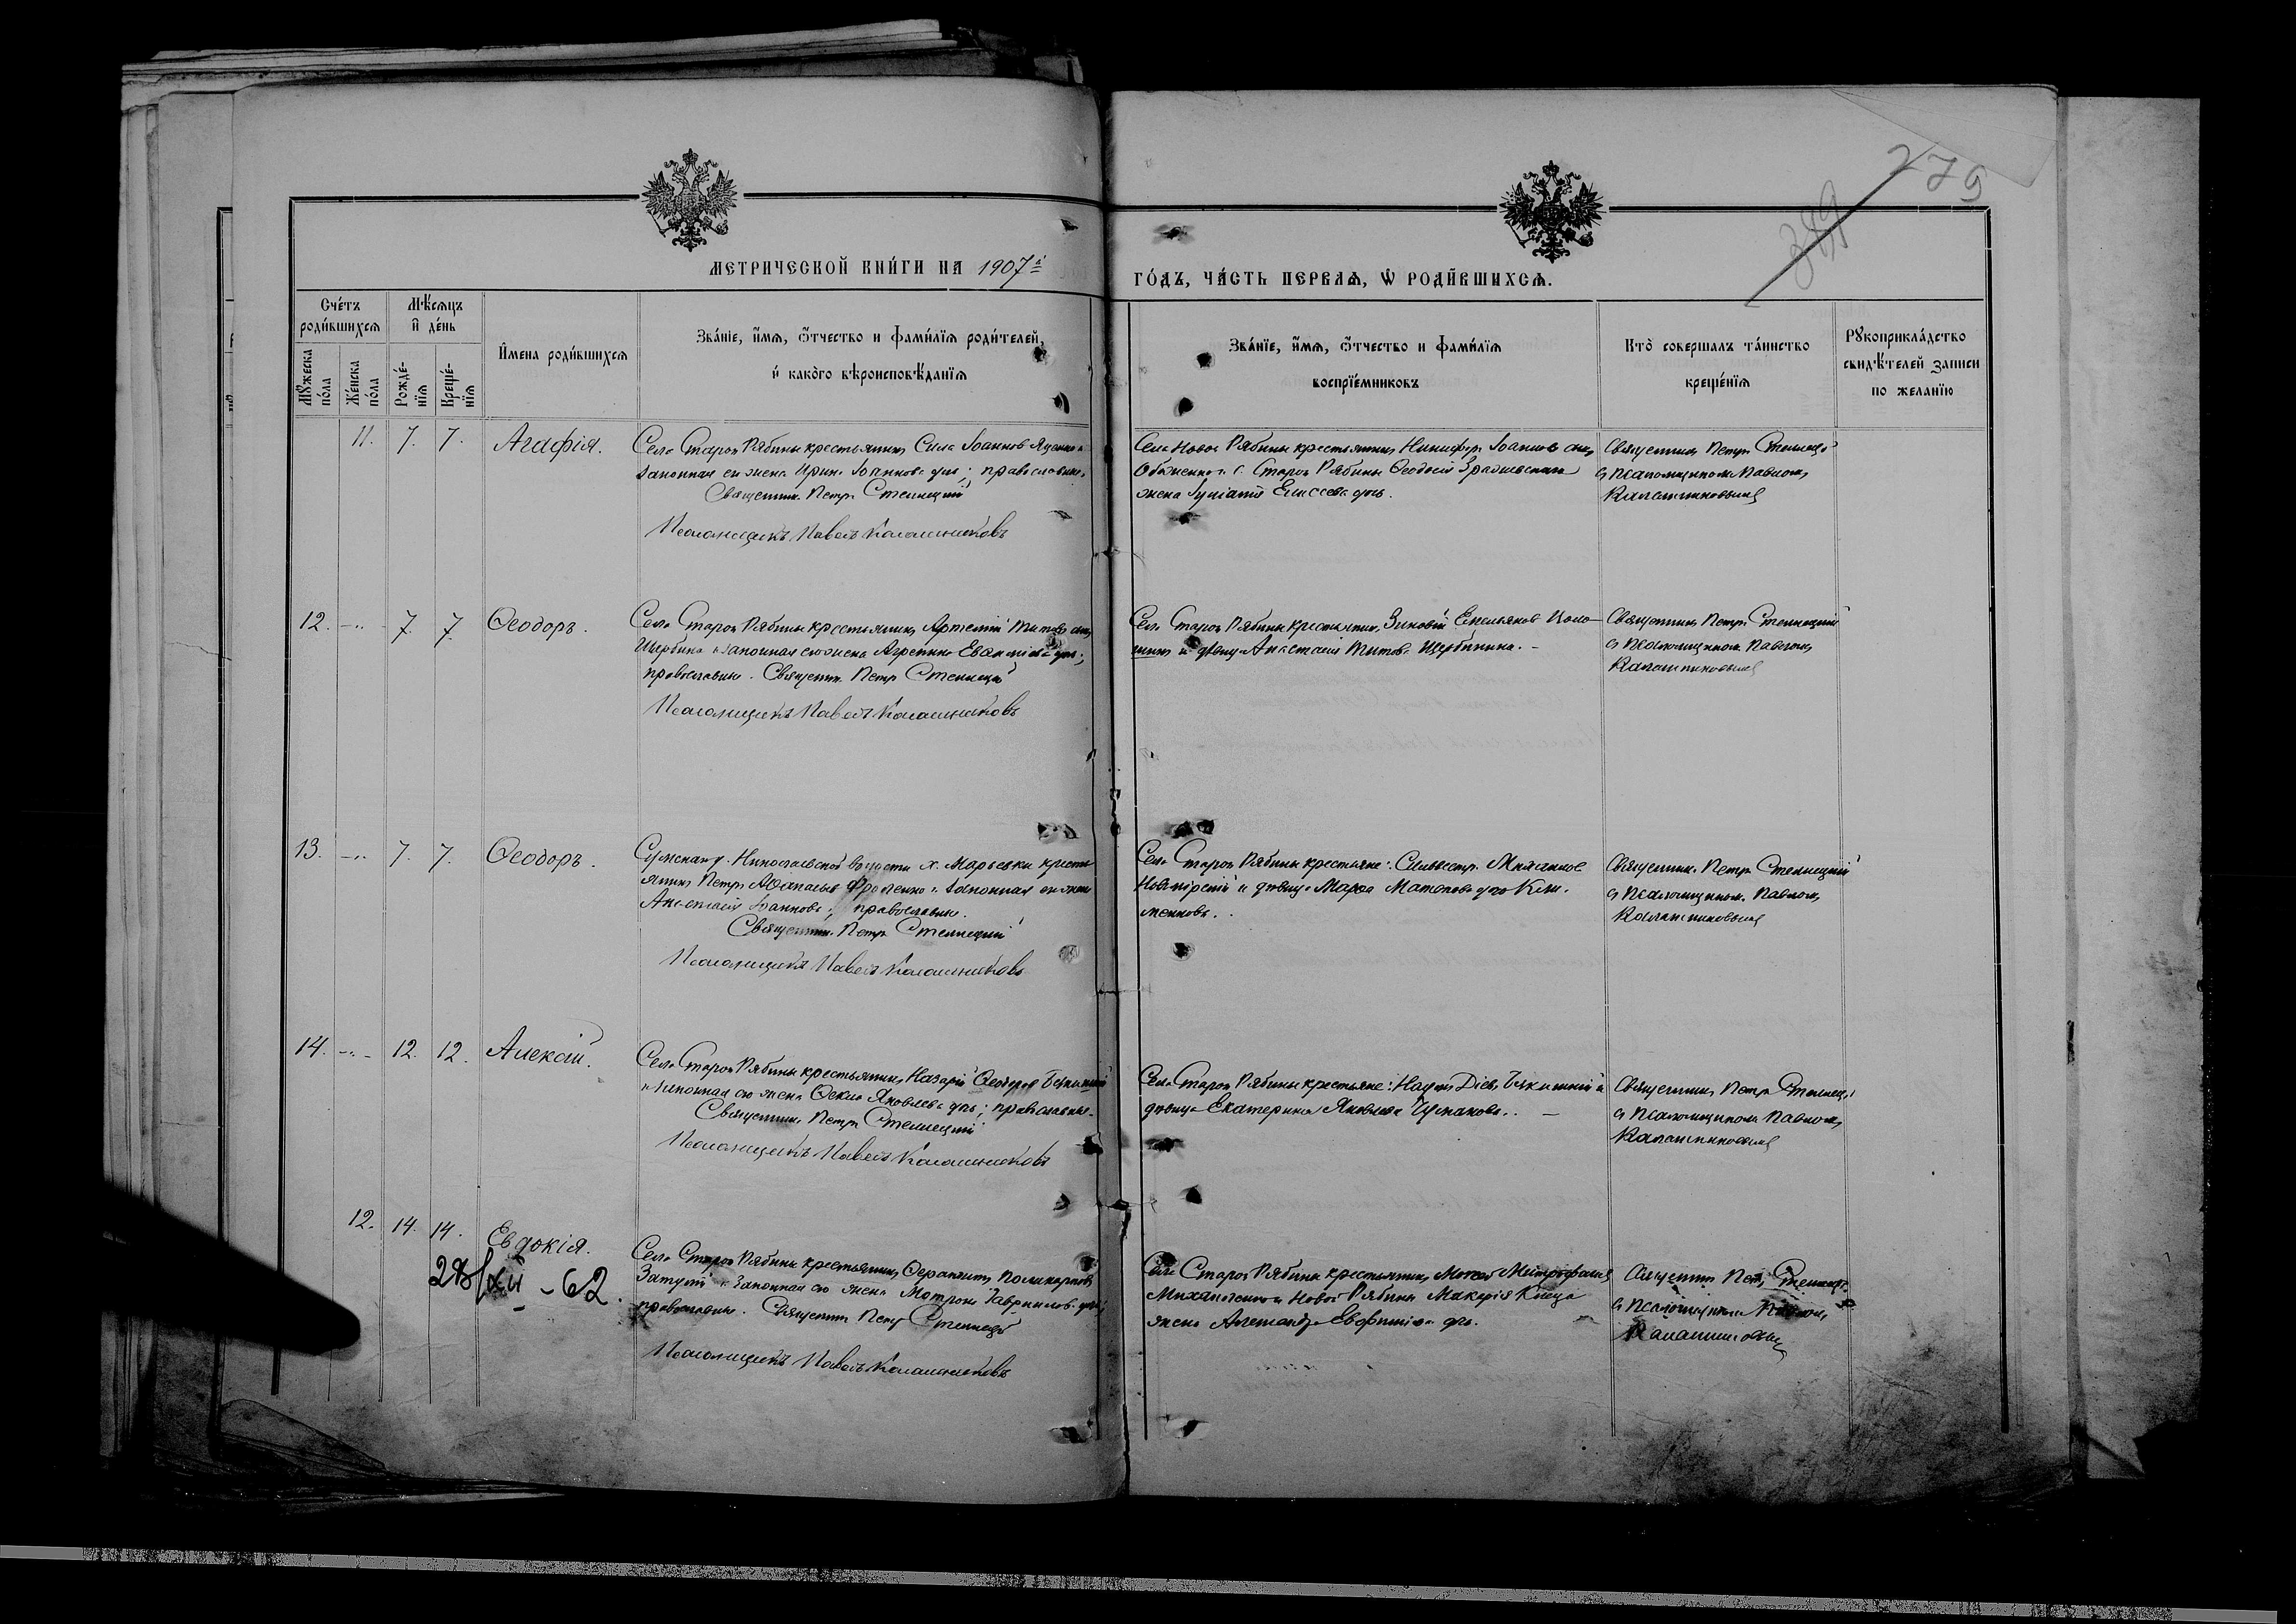 279
389
МЕТРИЧЕСКОЙ КНИ́ГИ НА 1907 й
ГО́ДЪ, ЧА́СТЬ ПЕРВАѦ, Ѡ РОДИ́ВШИХСѦ.
Сче́тъ родѝвшихсѧ
Мѣ́сѧцъ и҆ де́нь
Мꙋжеска по́ла
Же́нска по́ла
Рожде́нїѧ
Креще́нїѧ
И҆мена роди́вшихсѧ
Зва́нїе, и҆́мѧ, ѻ҆́тчество и фами́лїѧ роди́телей,
и҆ како́го вѣроисповѣ́данїѧ
Зва́нїе, и҆́мѧ, ѻ҆́тчество и фами́лїѧ
воспрїе́мниковъ
Кто̀ совершалъ та́инство
креще́нїѧ
Рꙋкоприкла́дство
свидѣ́телей записи
по жела́нїю
11. 7. 7. Агафія.
Села Старой Рябины крестьянинъ Сила Іоанновъ
законная его жена Ирина Іоаннова ; православные.
Священник Петръ Стеллецкій
Псаломщикъ Павелъ Калашниковъ
Села Новой Рябины крестьянинъ Никифоръ Іоанновъ
с. Старой Рябины Ѳеодосій
жена Елисеева
Священникъ Петръ Стеллецкій
съ псаломщикомъ Павломъ
Калашниковымъ
12. -"- 7. 7. Ѳеодоръ.
Села Старой Рябины крестьянинъ Артемій Титовъ
Щербина и законная его жена Агрепина
православные. Священник Петръ Стеллецкій
Псаломщикъ Павелъ Калашниковъ
Села Старой Рябины крестьянинъ Зиновій Емельяновъ
и дѣвица Анастасія Титова Щербинина. -
Священникъ Петръ Стеллецкій
съ псаломщикомъ Павломъ
Калашниковымъ
13. -"- 7. 7. Ѳеодоръ.
Сумскаго у. Николаевской волости х. Марьевки кресть-
янинъ Петръ Аѳанасьев Фроленко и законная его жена
Анастасія Іоаннова; православные.
Священник Петръ Стеллецкій
Псаломщикъ Павелъ Калашниковъ
Села Старой Рябины крестьяне: Сильвестръ
и дѣвица Марѳа
Священник Петръ Стеллецкій
съ псаломщиком Павломъ
Калашниковымъ
14. -"- 12. 12. Алексій.
Села Старой Рябины крестьянинъ Назарій Ѳеодоровъ
и законная его жена Ѳекла Яковлева ; православные.
Священник Петръ Стеллецкій
Псаломщикъ Павелъ Калашниковъ
Села Старой Рябины крестьяне: Наумъ и
дѣвица Екатерина Яковлева Чумакова. . -
Священникъ Петръ Стеллецкій
съ псаломщикомъ Павломъ
Калашниковымъ
12. 14. 14. Евдокія.
28/XII - 62.
Села Старой Рябины крестьянинъ Ѳерапонтъ Поликарповъ
и законная его жена Матрона Гавриилова
православные. Священник Петръ Стеллецкій
Псаломщикъ Павелъ Калашниковъ
Села Старой Рябины крестьянинъ Митрофановъ
и Новой Рябины Макарія
жена Александра
Священник Петръ Стеллецкій
съ псаломщикомъ Павломъ
Калашниковымъ